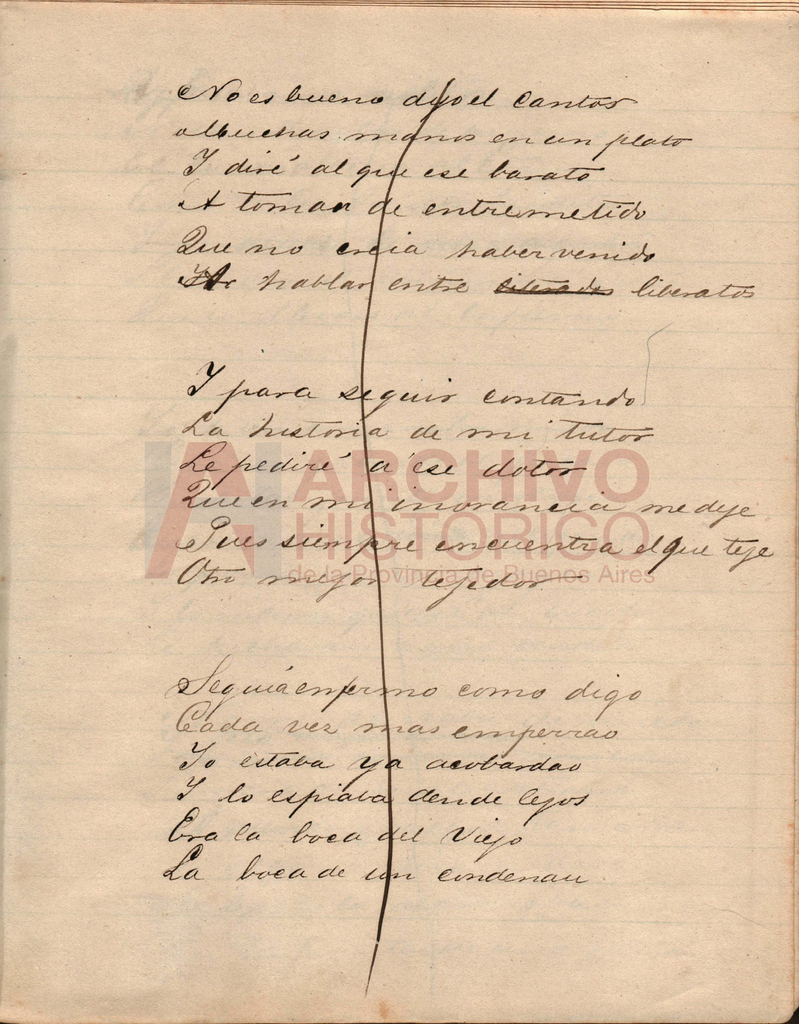 No es bueno dijo el Cantor
Muchas manos en un plato
Y diré al que ese barato
A tomau de entremetido
Que no creia haber venido
A hablar entre literatos

Y para seguir contando
La historia de mi tutor
Le pediré a ese dotor
Que en mi inorancia me deje
Pues siempre encuentra el que teje
Otro mejor tejedor

Seguia enfermo como digo
Cada vez mas emperrao
Yo estaba ya acobardao
Y lo espiaba dende lejos
Era la boca del Viejo
La boca de un condenau
ARCHIVO
HISTORICO
de la Provincia de Buenos Aires